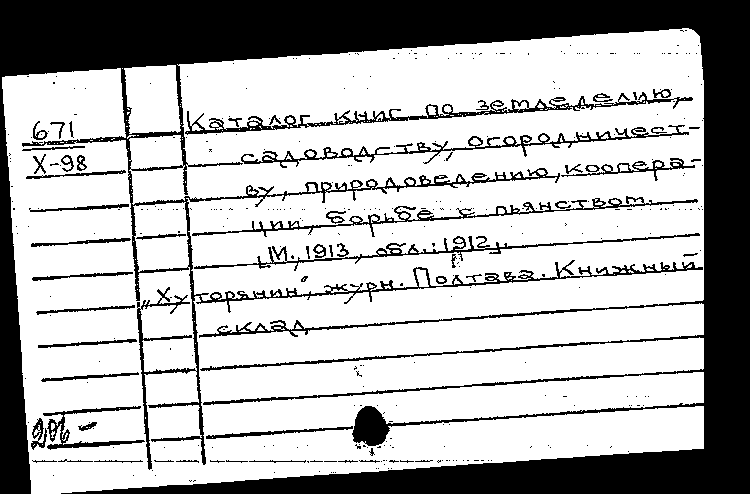 671
X-98
Каталог книг по земледелию,
садоводству, огородничест-
ву, природоведению, коопера-
ции, борьбе с пьянством.
[М., 1913, обл.: 1912].
„Хуторянин", журн. Полтава. Книжный
склад